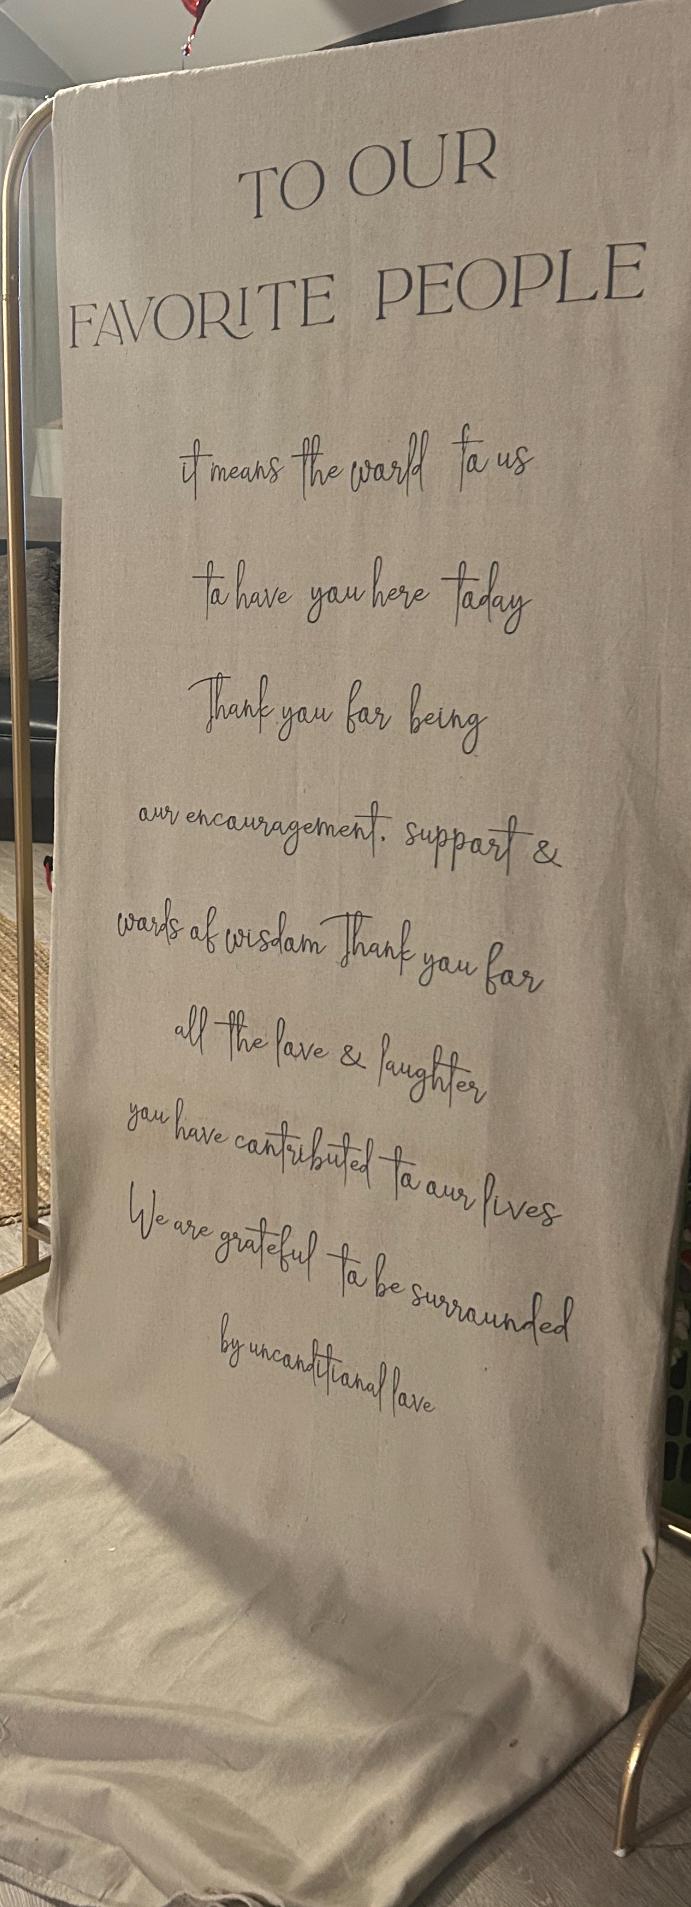 TO OUR
FAVORITE PEOPLE
it means the world to us
to have you here today
Thank you for being
our encouragement, support &
words of wisdom Thank you for
all the love & laughter
you have contributed to our lives
We are grateful to be surrounded
by unconditional love